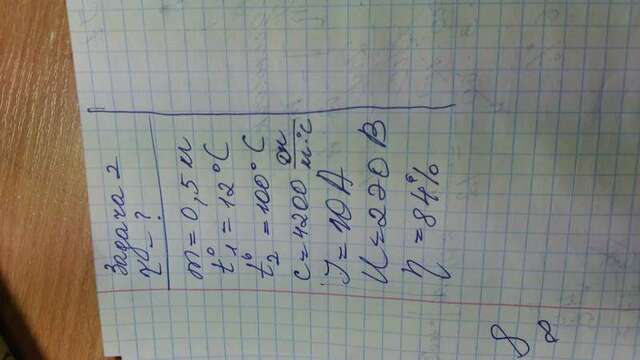 8
8
Задача 2
m = 0,5 м
t°₁ = 12°C
t°₂ = 100°C
c = 4200 Дж/м·°C
J = 10 А
U = 220 В
η = 84%